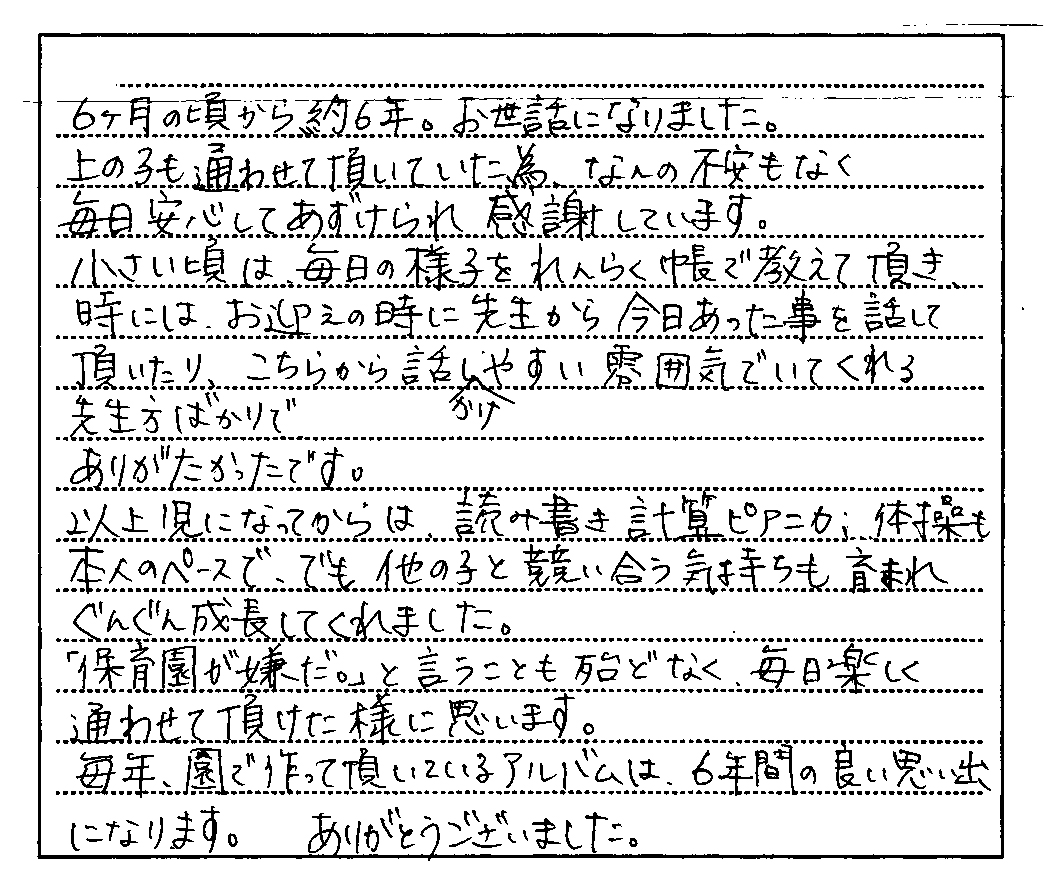 6ヶ月の頃から約6年。お世話になりました。
上の子も通わせて頂いていた為、なんの不安もなく
毎日安心してあずけられ 感謝しています。
小さい頃は、毎日の様子をれんらく帳で教えて頂き、
時には、お迎えの時に先生から今日あった事を話して
頂いたり、こちらから話しかけやすい雰囲気でいてくれる
先生方ばかりで
ありがたかったです。
以上児になってからは、読み書き計算ピアニカ、体操も
本人のペースで、でも他の子と競い合う気持ちも育まれ
ぐんぐん成長してくれました。
「保育園が嫌だ。」と言うことも殆どなく、毎日楽しく
通わせて頂けた様に思います。
毎年、園で作って頂いているアルバムは、6年間の良い思い出
になります。 ありがとうございました。